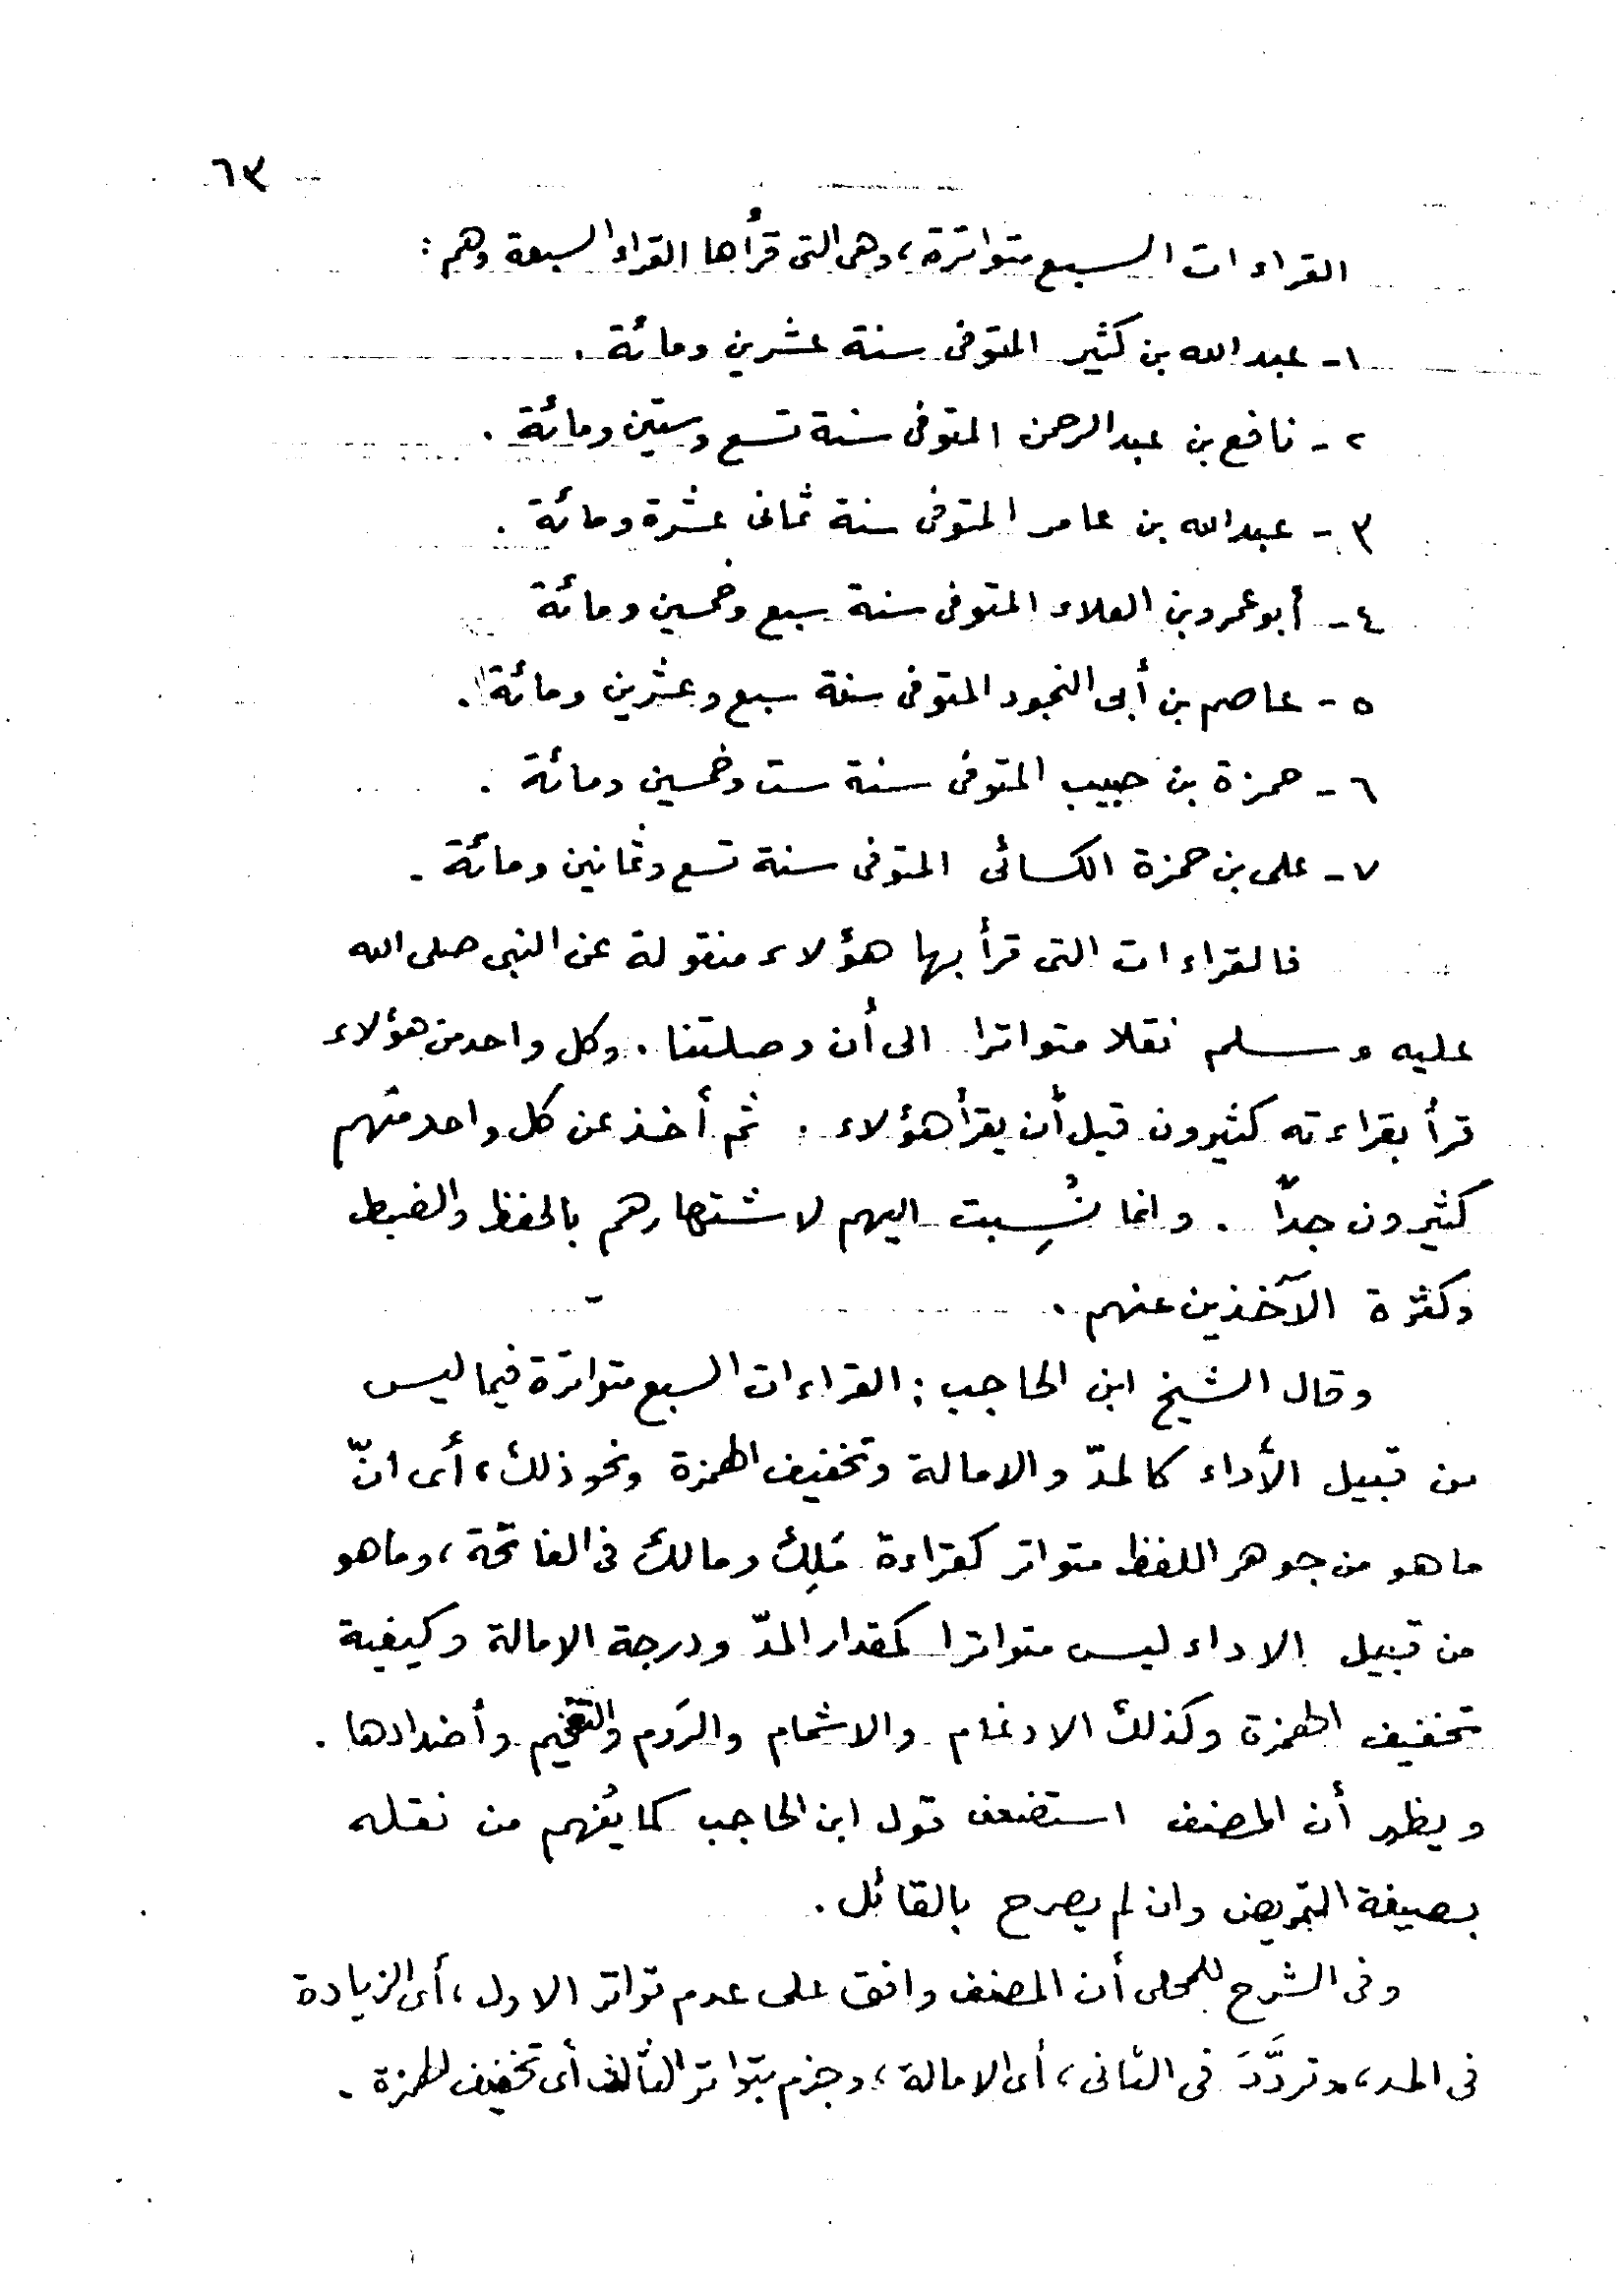 ٦٣
القراءات السبع متواترة، وهى التى قرأها القراء السبعة وهم:
١- عبدالله بن كثير المتوفى سنة عشرين ومائة.
٢- نافع بن عبدالرحمن المتوفى سنة تسع وستين ومائة.
٣- عبدالله بن عامر المتوفى سنة ثمانى عشرة ومائة.
٤- أبو عمرو بن العلاء المتوفى سنة سبع وخمسين ومائة
٥- عاصم بن أبى النجود المتوفى سنة سبع وعشرين ومائة.
٦- حمزة بن حبيب المتوفى سنة ست وخمسين ومائة.
٧- على بن حمزة الكسائى المتوفى سنة تسع وثمانين ومائة.
فالقراءات التى قرأ بها هؤلاء منقولة عن النبى صلى الله
عليه وسلم نقلا متواترا الى أن وصلتنا. وكل واحد من هؤلاء
قرأ بقراءته كثيرون قبل أن يقرأ هؤلاء. ثم أخذ عن كل واحد منهم
كثيرون جدّاً. وانما نُسِبت اليهم لاشتهارهم بالحفظ والضبط
وكثرة الآخذين عنهم.
وقال الشيخ ابن الحاجب: القراءات السبع متواترة فيما ليس
من قبيل الأداء كالمدّ والامالة وتخفيف الهمزة ونحو ذلك، أى انّ
ما هو من جوهر اللفظ متواتر كقراءة مَلِك ومالك فى الفاتحة، وما هو
من قبيل الاداء ليس متواترا كمقدار المدّ ودرجة الامالة وكيفية
تخفيف الهمزة وكذلك الادغام والاشمام والرَوم والتفخيم وأضدادها.
ويظهر أن المصنف استضعف قول ابن الحاجب كما يُفهم من نقله
بصيغة التمريض وان لم يصرح بالقائل.
وفى الشرح للمحلى أن المصنف وافق على عدم تواتر الاول، أى الزيادة
فى المد، وتردَّدَ فى الثانى، أى الامالة، وجزم بتواتر الثالث أى تخفيف الهمزة.